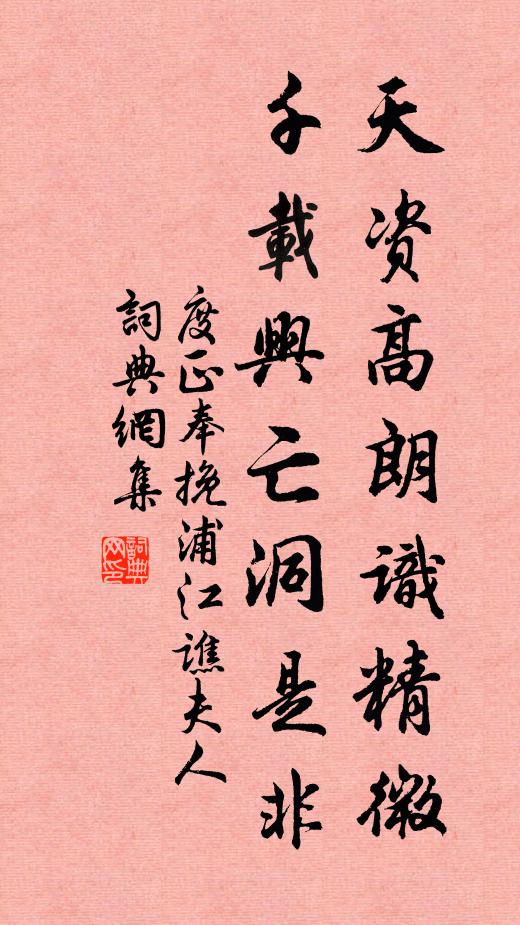 天资高朗識精微
千載興亡洞是非
度正奉挽浦江譙夫人
詞典網集
詞典网印